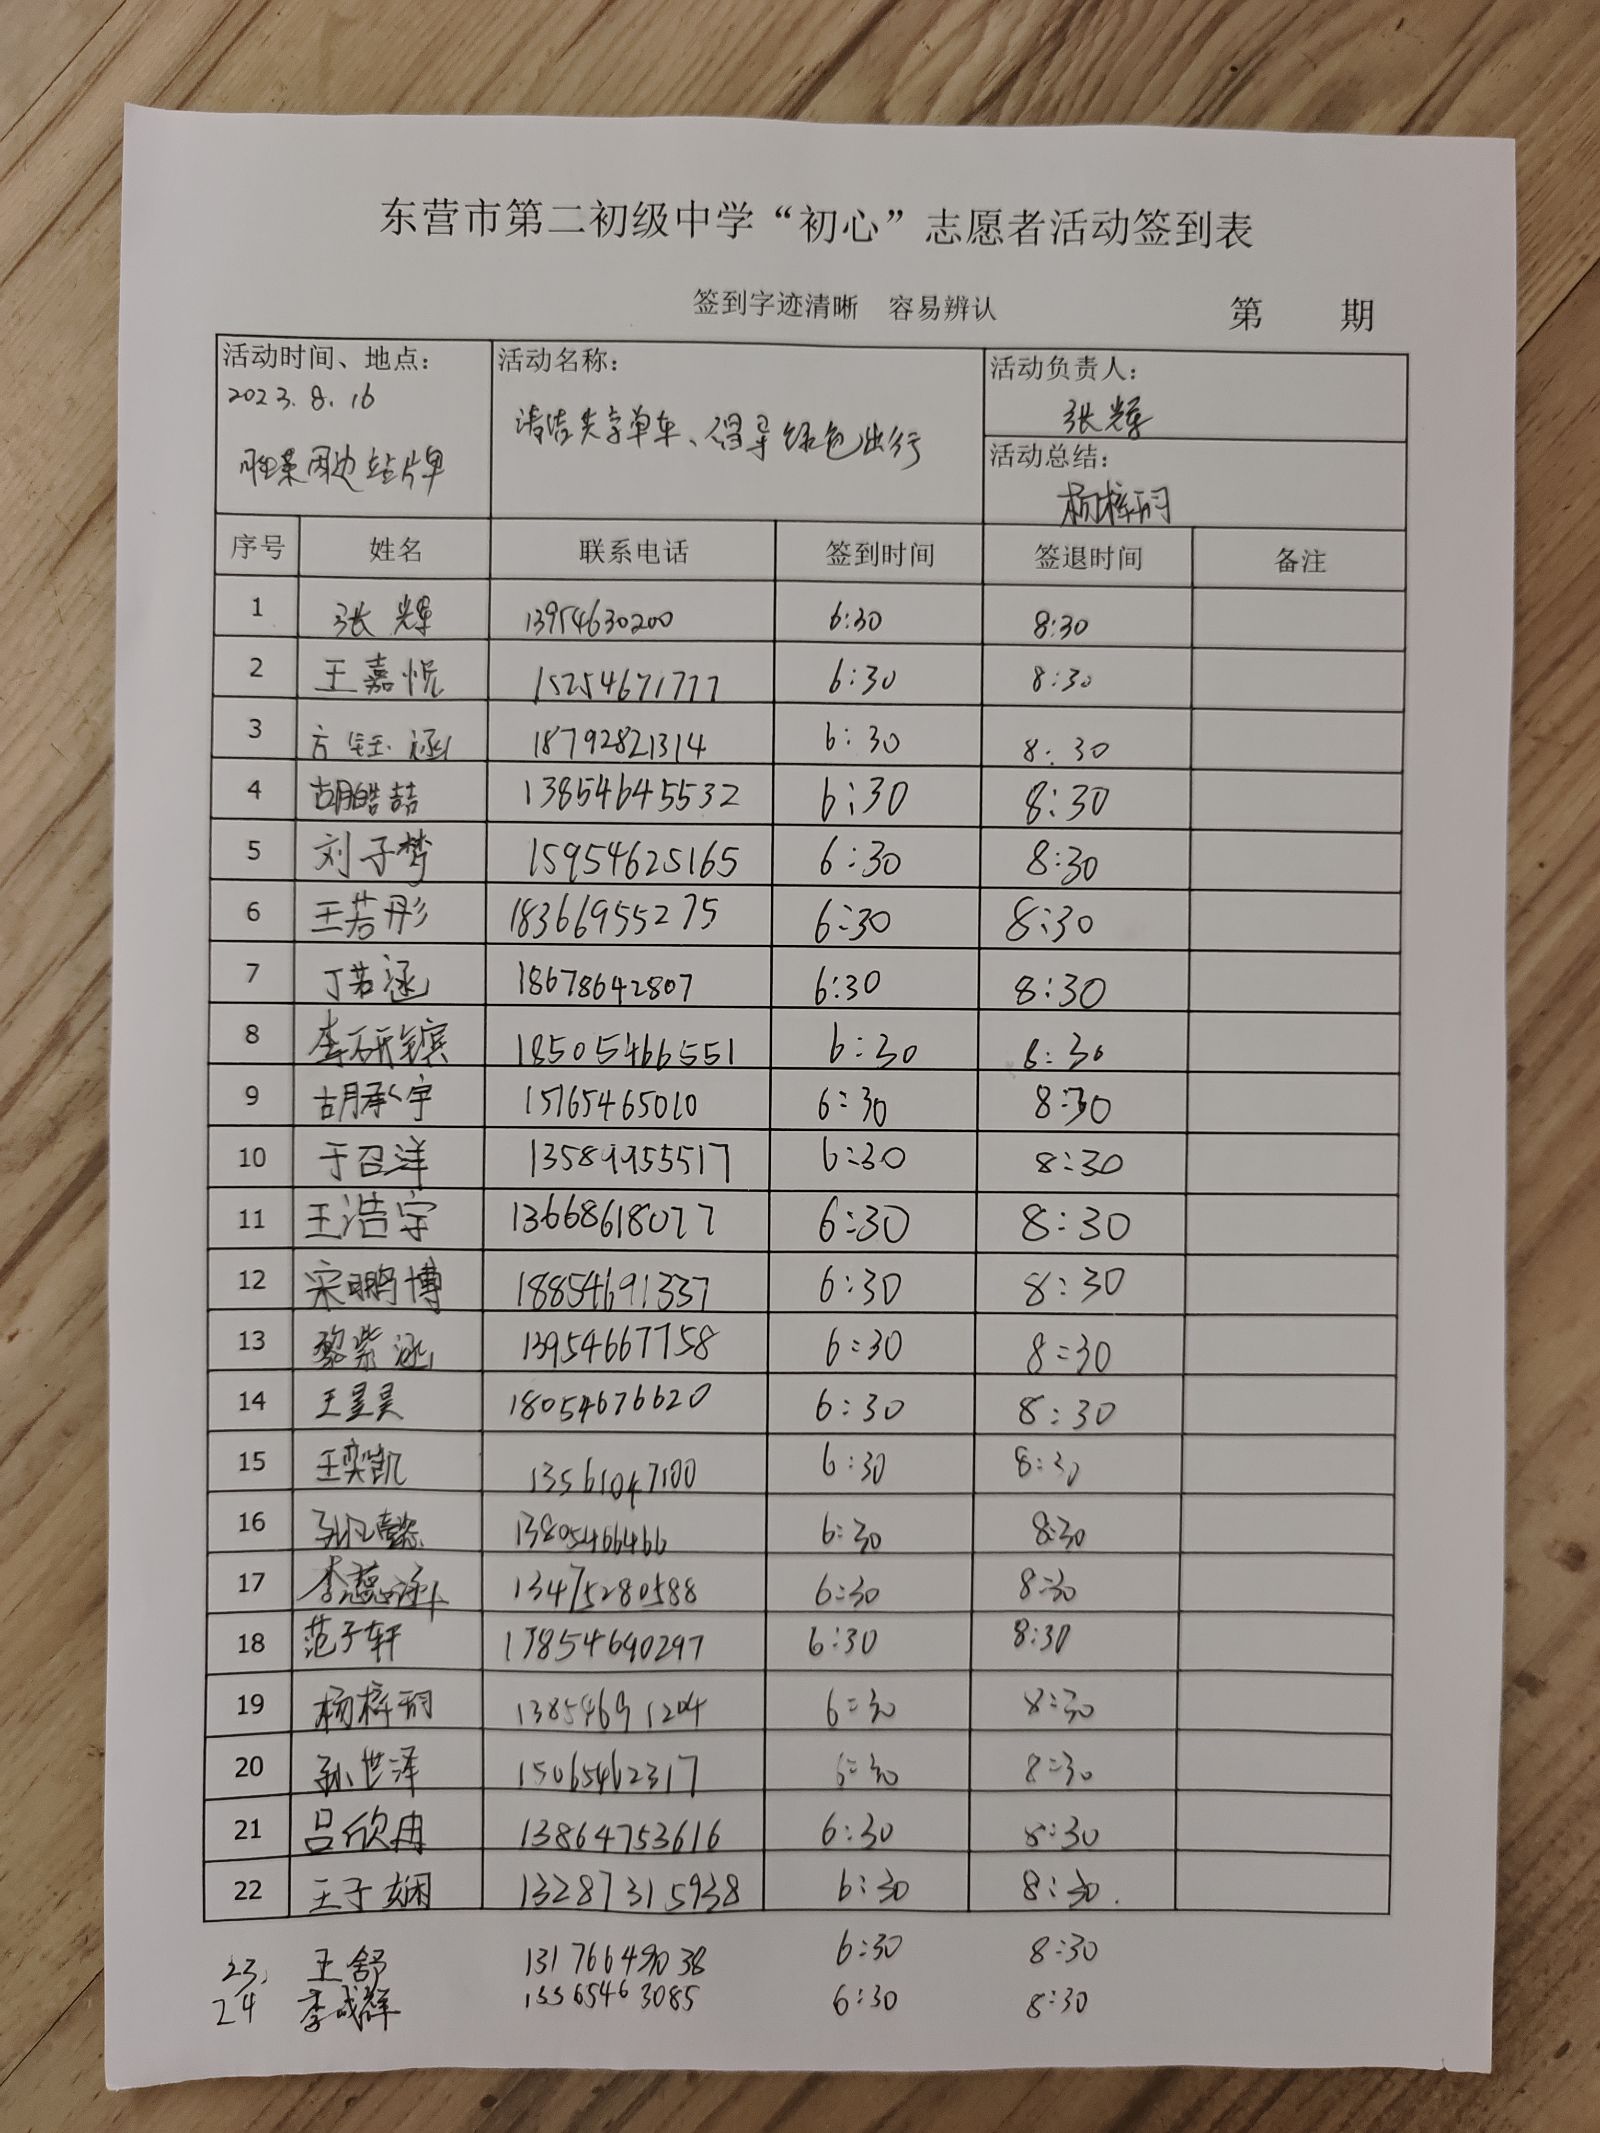 东营市第二初级中学“初心”志愿者活动签到表
签到字迹清晰 容易辨认 第 期
活动时间、地点： 活动名称： 活动负责人：
2023.8.16 清洁共享单车、倡导绿色出行 张辉
周边站牌 活动总结：
杨梓
序号 姓名 联系电话 签到时间 签退时间 备注
1 张辉 13954630200 6:30 8:30
2 王嘉悦 15254671777 6:30 8:30
3 方钰涵 18792821314 6:30 8:30
4 胡皓喆 13854645532 6:30 8:30
5 刘子梦 15954625165 6:30 8:30
6 王若彤 18366955275 6:30 8:30
7 丁若涵 18678642807 6:30 8:30
8 李研镔 18505466551 6:30 8:30
9 胡承宇 15165465010 6:30 8:30
10 于召洋 13589955517 6:30 8:30
11 王浩宇 13668618077 6:30 8:30
12 宋鹏博 18854691337 6:30 8:30
13 黎紫涵 13954667758 6:30 8:30
14 王昱昊 18054676620 6:30 8:30
15 王奕凯 13561047100 6:30 8:30
16 13805466466 6:30 8:30
17 李 13475280588 6:30 8:30
18 范子轩 17854690297 6:30 8:30
19 杨梓 13854691204 6:30 8:30
20 孙世泽 15065462317 6:30 8:30
21 吕欣冉 13864753616 6:30 8:30
22 王子娴 13287315938 6:30 8:30.
23. 王舒 6:30 8:30
24 李成群 15565463085 6:30 8:30